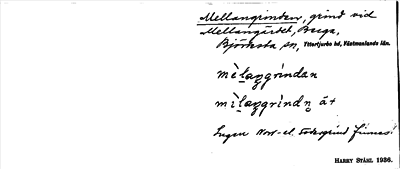 Mellangrinden, grind vid
Mellangärdet, Berga,
Björksta sn, Yttertjurbo hd, Västmanlands län.
mèlaŋgrìndan
mìlaŋgrìndn̥ ä+
Ingen Norr- el. Södergrind finnes!
HARRY STÅHL 1936.